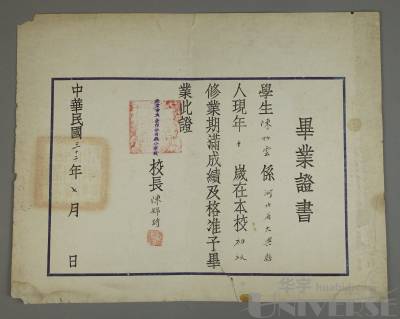 畢業證書
學生陳竹雲係河北省大興縣
人現年十歲在本校初級
修業期滿成績及格准予畢
業此證
校長陳
中華民國三十二年七月 日
华宇 huabid.com
UNIVERSE